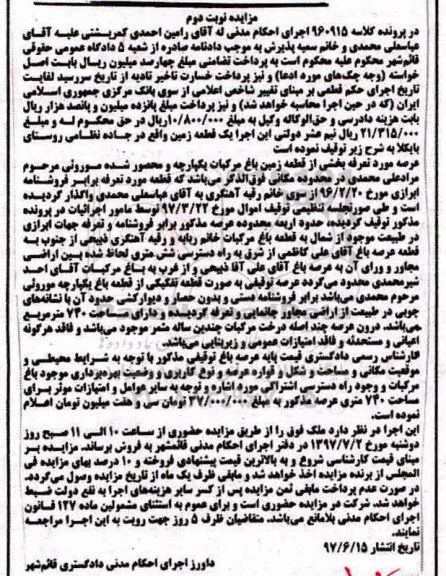 مزایده نوبت دوم
در پرونده کلاسه 960915 اجرای احکام مدنی له آقای رامین احمدی کمرپشتی علیه آقای
عباسعلی محمدی و خانم سمیه پذیرش به موجب دادنامه صادره از شعبه 5 دادگاه عمومی حقوقی
قائم‌شهر محکوم علیه محکوم است به پرداخت تضامنی مبلغ چهارصد میلیون ریال بابت اصل
خواسته (وجه چک‌های مورد ادعا) و نیز پرداخت خسارت تاخیر تادیه از تاریخ سررسید لغایت
تاریخ اجرای حکم قطعی بر مبنای تغییر شاخص اعلامی از سوی بانک مرکزی جمهوری اسلامی
ایران (که در حین اجرا محاسبه خواهد شد) و نیز پرداخت مبلغ پانزده میلیون و پانصد هزار ریال
بابت هزینه دادرسی و حق‌الوکاله وکیل به مبلغ 10/800/000ریال در حق محکوم له و مبلغ
21/315/000 ریال نیم عشر دولتی این اجرا یک قطعه زمین واقع در جاده نظامی روستای
بایکلا به شرح زیر توقیف نموده است
عرصه مورد تعرفه بخشی از قطعه زمین باغ مرکبات یکپارچه و محصور شده موروثی مرحوم
مرادعلی محمدی در محدوده مکانی فوق‌الذکر می‌باشد که قطعه مورد تعرفه برابر فروشنامه
ابرازی مورخ 96/2/20 از سوی خانم رقیه آهنگری به آقای عباسعلی محمدی واگذار گردیده
است و طی صورتجلسه تنظیمی توقیف اموال مورخ 97/3/22 توسط مامور اجرائیات در پرونده
مذکور توقیف گردیده، حدود اربعه محدوده عرصه مذکور برابر فروشنامه و تعرفه جهات ابرازی
در طبیعت موجود از شمال به قطعه باغ مرکبات خانم ربابه و رقیه آهنگری ذبیحی از جنوب به
قطعه عرصه باغ آقای علی کاظمی از شرق به راه دسترسی شش متری لحاظ شده بین اراضی
مجاور و ورای آن به عرصه باغ آقای علی آقا ذبیحی و از غرب به باغ مرکبات آقای احد
شیرمحمدی محدود می‌گردد عرصه توقیفی به صورت قطعه تفکیکی از قطعه باغ یکپارچه موروثی
مرحوم محمدی می‌باشد برابر فروشنامه دستی و بدون حصار و دیوارکشی حدود آن با نشانه‌های
چوبی در طبیعت از اراضی مجاور جانمایی و تعرفه گردیده و دارای مساحت 740 مترمربع
می‌باشد. درون عرصه چند اصله درخت مرکبات چندین ساله مثمر موجود می‌باشد و فاقد هرگونه
اعیانی و مستحدثه و فاقد امتیازات عمومی و زیربنایی می‌باشد.
کارشناس رسمی دادگستری قیمت پایه عرصه باغ توقیفی مذکور با توجه به شرایط محیطی و
موقعیت مکانی و مساحت و شکل و قواره عرصه و نوع کاربری و وضعیت بهره‌برداری موجود باغ
مرکبات و وجود راه دسترسی اشتراکی مورد اشاره و توجه به سایر عوامل و امتیازات موثر برای
مساحت 740 متری عرصه مذکور به مبلغ 37/000/000 تومان سی و هفت میلیون تومان اعلام
نموده است.
این اجرا در نظر دارد ملک فوق را از طریق مزایده حضوری از ساعت 10 الی 11 صبح روز
دوشنبه مورخ 1397/7/2 در دفتر اجرای احکام مدنی قائمشهر به فروش برساند. مزایده بر
مبنای قیمت کارشناسی شروع و به بالاترین قیمت پیشنهادی فروخته و 10 درصد بهای مزایده فی
المجلس از برنده مزایده اخذ خواهد شد و مابقی ظرف یک ماه از تاریخ مزایده وصول می‌گردد.
در صورت عدم پرداخت مابقی ثمن مزایده پس از کسر سایر هزینه‌های اجرا به نفع دولت ضبط
خواهد شد. شرکت در مزایده حضوری است و برای عموم به استثنای مشمولین ماده 127 قانون
اجرای احکام مدنی بلامانع می‌باشد. متقاضیان ظرف 5 روز جهت رویت به این اجرا مراجعه
نمایند.
تاریخ انتشار 97/6/15
داورز اجرای احکام مدنی دادگستری قائم‌شهر